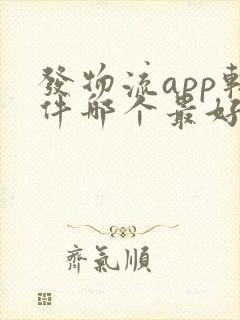 發物流app軟
件哪个最好
齊氣順